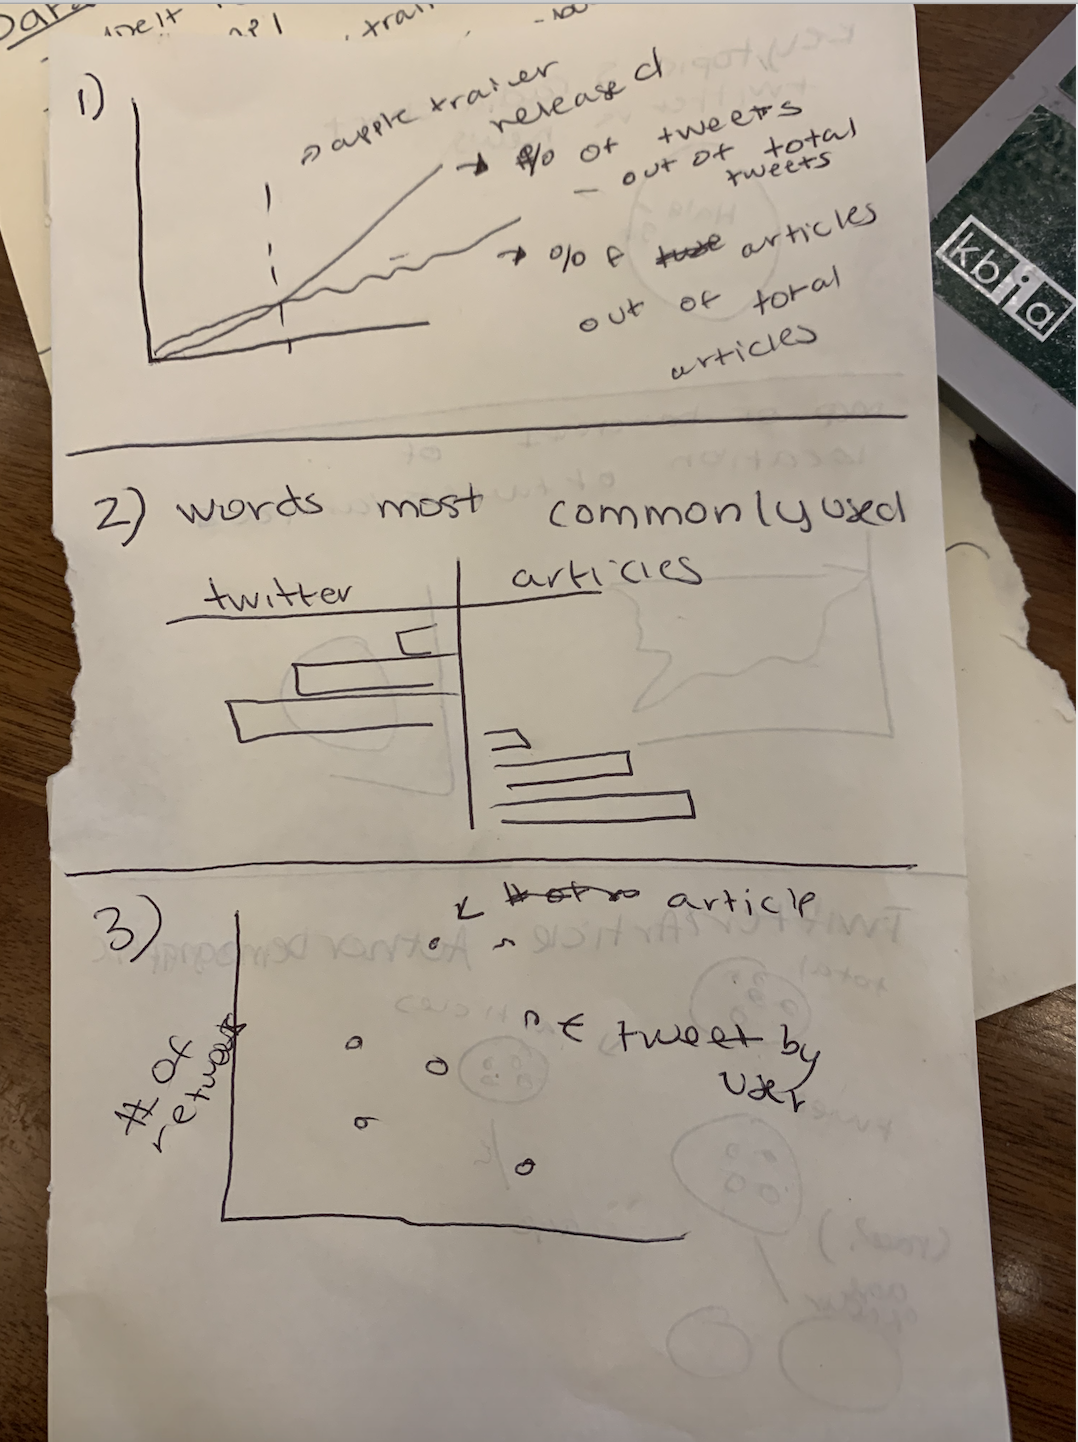 Data
1)
apple trailer
released
% of tweets
- out of total
tweets
% of articles
out of total
articles
kbia
2) words most commonly used
twitter
articles
3)
article
# of
retweets
tweet by
user